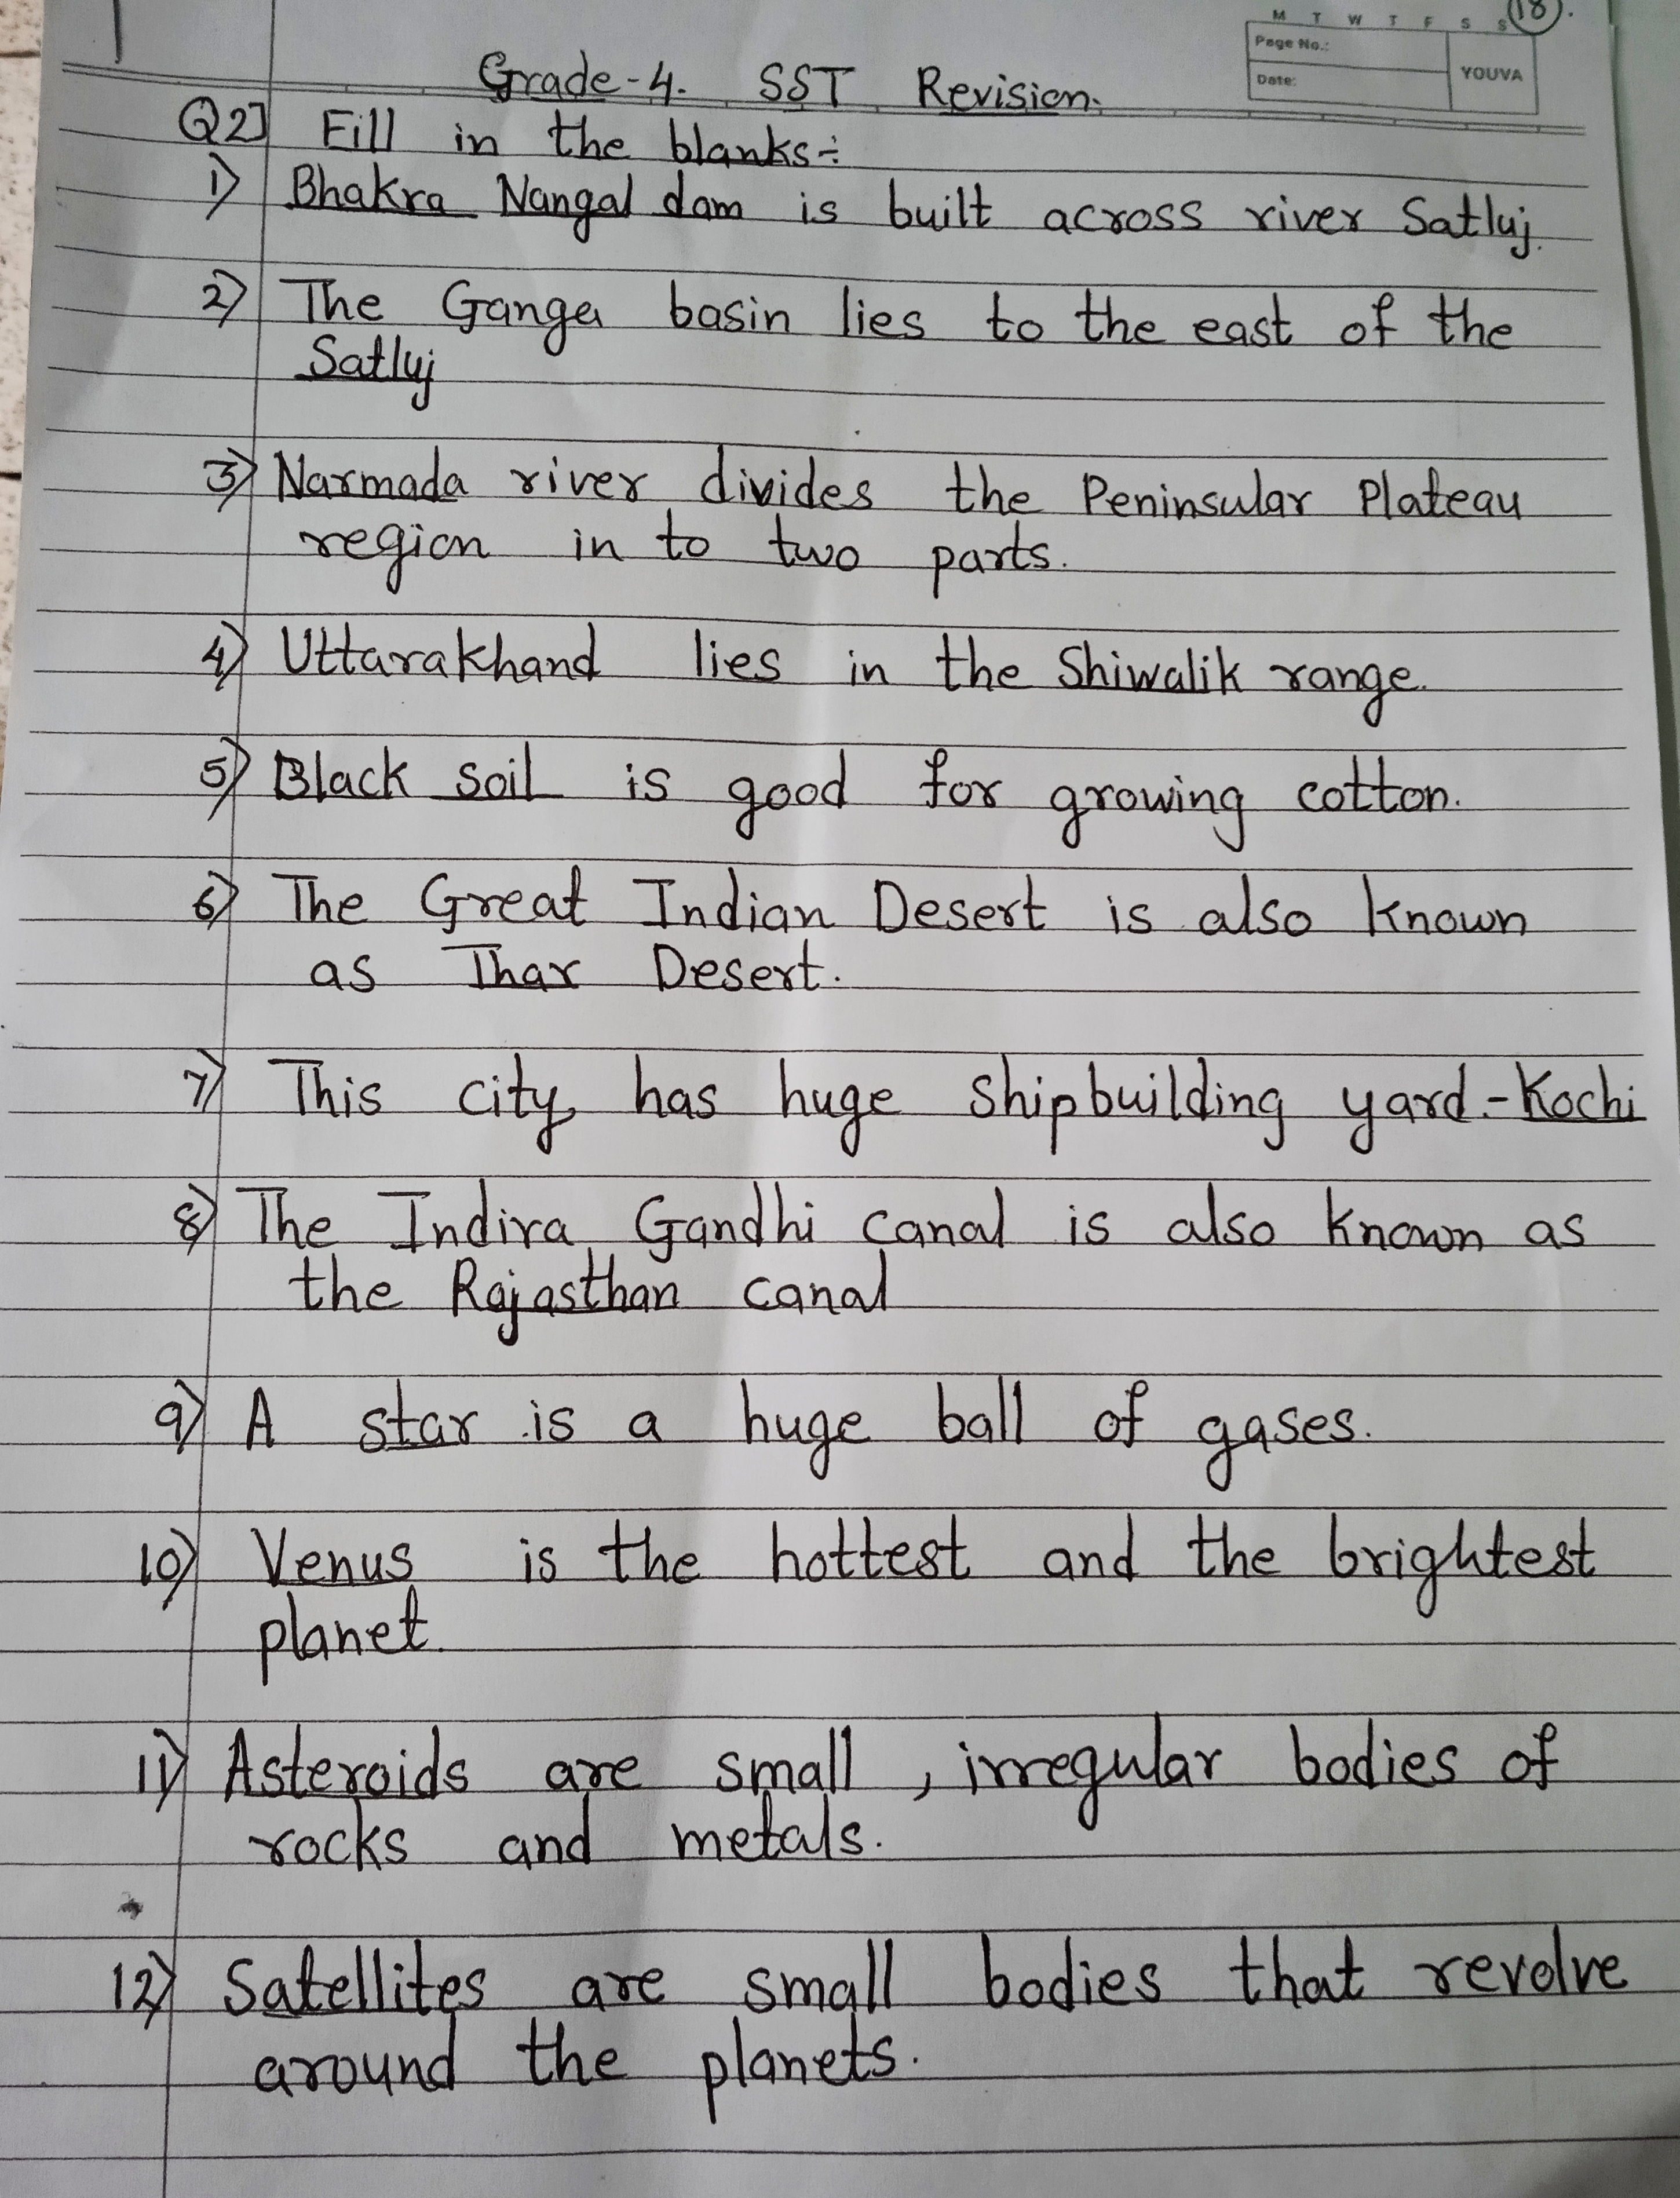 M T W T F S S
18
Page No.:
YOUVA
Date:
Grade-4. SST Revision.
Q2] Fill in the blanks:-
1) Bhakra Nangal dam is built across river Satluj.
2) The Ganga basin lies to the east of the
Satluj
3) Narmada river divides the Peninsular Plateau
region in to two parts.
4) Uttarakhand lies in the Shiwalik range.
5) Black soil is good for growing cotton.
6) The Great Indian Desert is also known
as Thar Desert.
7) This city has huge shipbuilding yard.-Kochi
8) The Indira Gandhi canal is also known as
the Rajasthan canal
9) A star is a huge ball of gases.
10) Venus is the hottest and the brightest
planet.
11) Asteroids are small, irregular bodies of
rocks and metals.
12) Satellites are small bodies that revolve
around the planets.